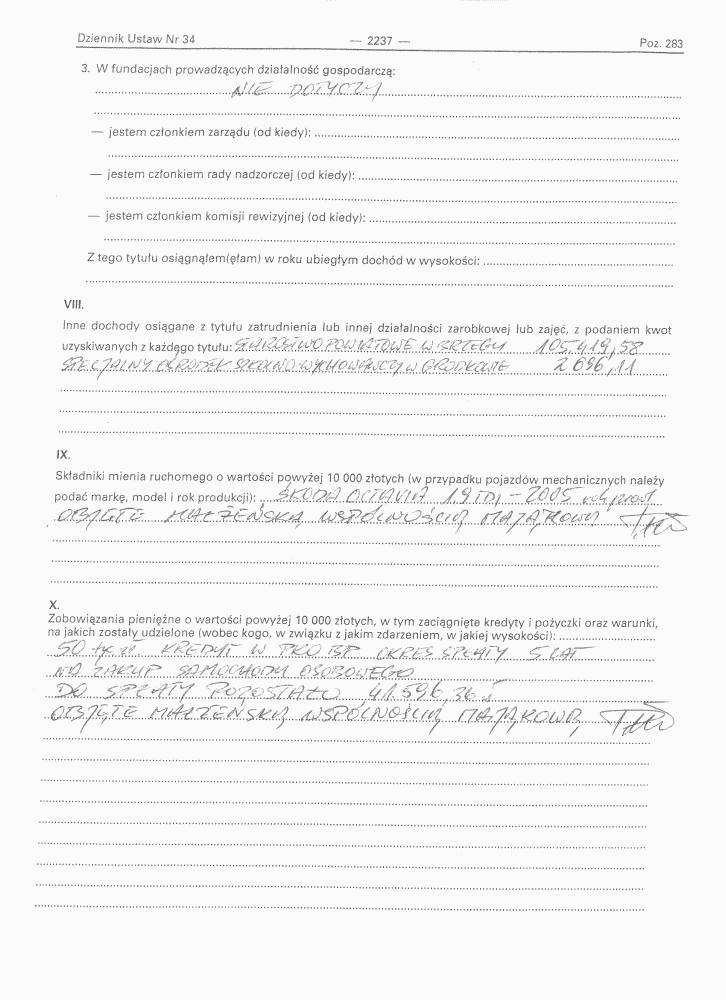 Dziennik Ustaw Nr 34 — 2237 — Poz. 283
3. W fundacjach prowadzących działalność gospodarczą:
NIE DOTYCZY
— jestem członkiem zarządu (od kiedy):
— jestem członkiem rady nadzorczej (od kiedy):
— jestem członkiem komisji rewizyjnej (od kiedy):
Z tego tytułu osiągnąłem(ęłam) w roku ubiegłym dochód w wysokości:
VIII.
Inne dochody osiągane z tytułu zatrudnienia lub innej działalności zarobkowej lub zajęć, z podaniem kwot
uzyskiwanych z każdego tytułu: STAROSTWO POWIATOWE W BRZEGU 105.419,58
SPECJALNY OŚRODEK SZKOLNO-WYCHOWAWCZY W GRODKOWIE 2 696,11
IX.
Składniki mienia ruchomego o wartości powyżej 10 000 złotych (w przypadku pojazdów mechanicznych należy
podać markę, model i rok produkcji): SKODA OCTAVIA 1.9 TDI – 2005 rok prod.
OBJĘTE MAŁŻEŃSKĄ WSPÓLNOŚCIĄ MAJĄTKOWĄ
X.
Zobowiązania pieniężne o wartości powyżej 10 000 złotych, w tym zaciągnięte kredyty i pożyczki oraz warunki,
na jakich zostały udzielone (wobec kogo, w związku z jakim zdarzeniem, w jakiej wysokości):
50 tys. zł KREDYT W PKO BP OKRES SPŁATY 5 LAT
NA ZAKUP SAMOCHODU OSOBOWEGO
DO SPŁATY POZOSTAŁO 41.596,36 zł
OBJĘTE MAŁŻEŃSKĄ WSPÓLNOŚCIĄ MAJĄTKOWĄ